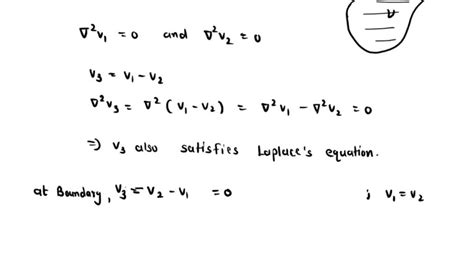 v
∇²v₁ = 0 and ∇²v₂ = 0
v₃ = v₁ - v₂
∇²v₃ = ∇² (v₁ - v₂) = ∇²v₁ - ∇²v₂ = 0
=) v₃ also satisfies Laplace's equation.
at Boundary, v₃ = v₂ - v₁ = 0 ; v₁ = v₂